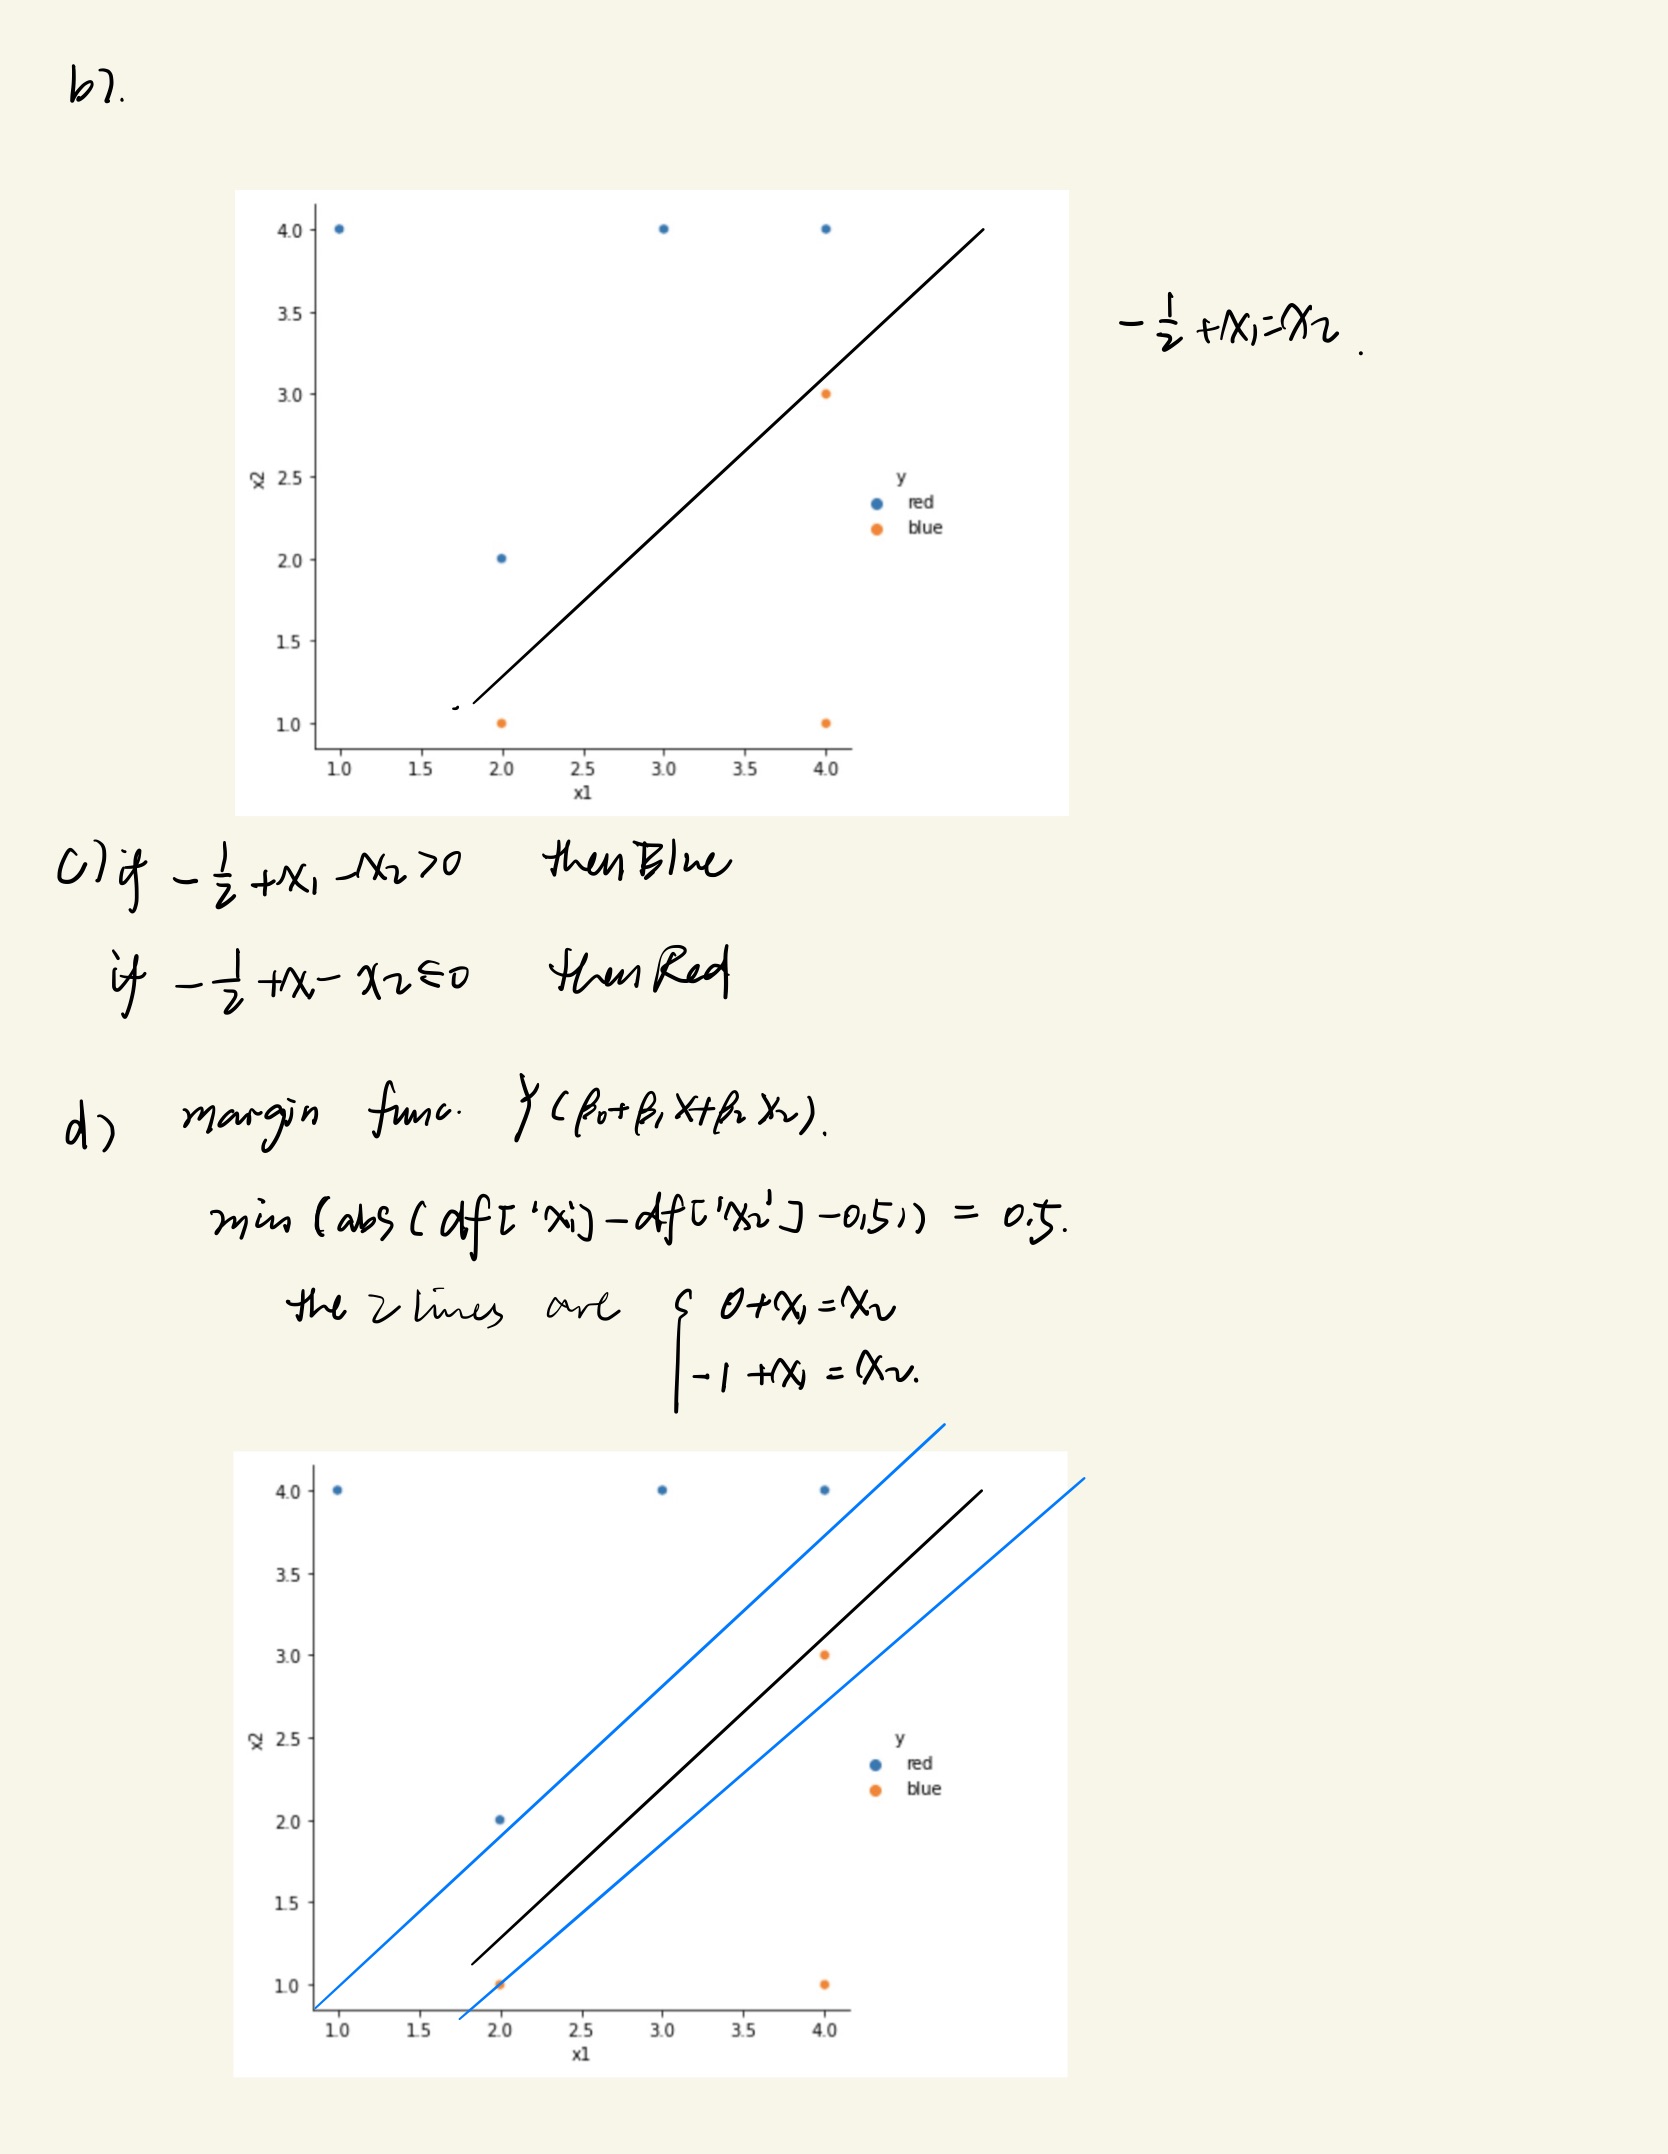 b).
4.0
3.5
3.0
x2 2.5
2.0
1.5
1.0
1.0 1.5 2.0 2.5 3.0 3.5 4.0
x1
y
red
blue
-1/2 +x1=x2.
c) if -1/2 +x1 -x2>0 then Blue
if -1/2 +x- x2≤0 then Red
d) margin func. Y(β0+β1X+β2X2).
min (abs(df['x1]-df['x2']-0.5)) = 0.5.
the 2 lines are { 0+x1=x2
-1+x1=x2.
4.0
3.5
3.0
x2 2.5
2.0
1.5
1.0
1.0 1.5 2.0 2.5 3.0 3.5 4.0
x1
y
red
blue